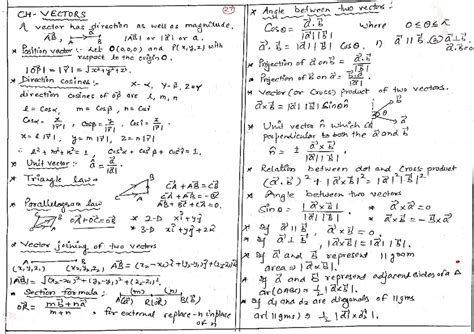 CH- VECTORS
(27)
A vector has direction as well as magnitude.
AB→, A→B, a→ |AB→| or |a→| or a.
* Position vector :- Let O(0,0,0) and P(x,y,z) with
respect to the origin O.
|OP→| = |r→| = √x²+y²+z².
* Direction cosines:- X-α, Y-β, Z-γ
direction cosines of OP→ are l, m, n
l = cosα, m = cosβ, n = cosγ
cosα = x/|r→|, cosβ = y/|r→|, cosγ = z/|r→|
x = l|r→|, y = m|r→|, z = n|r→|
∴ l²+m²+n² = 1 cos²α + cos²β + cos²γ = 1.
* Unit vector :- â = a→/|a→|
* Triangle Law →
CA→ + AB→ = CB→
CA→ + AB→ = -BC→
AB→ + BC→ + CA→ = 0.
* Parallelogram law
OA→ + OC→ = OB→
* 2-D xî+yĵ
* 3-D xî+yĵ+zk̂
* Vector joining of two vectors
A (x₁,y₁,z₁) B (x₂,y₂,z₂) AB→ = (x₂-x₁)î+(y₂-y₁)ĵ+(z₂-z₁)k̂
|AB→| = √(x₂-x₁)²+(y₂-y₁)²+(z₂-z₁)²
* Section formula :- (m) (n)
P(a→) R(r→) Q(b→)
OR→ = mb→+na→/m+n, for external replace -n inplace
of n
* Angle between two vectors:
cosθ = a→.b→/|a→||b→| where 0≤θ≤π
a→.b→ = |a→||b→| cosθ,
* Projection of a→ on b→ = a→.b→/|b→|
* Projection of b→ on a→ = b→.a→/|a→|
* Vector (or Cross) product of two vectors.
a→×b→ = |a→||b→| sinθ n̂
* Unit vector n̂ which is
perpendicular to both the a→ and b→
n̂ = ± a→×b→/|a→×b→|
* Relation between dot and cross product
(a→.b→)² + |a→×b→|² = |a→|²|b→|²
* Angle between two vectors
sinθ = |a→×b→|/|a→||b→|
* a→×a→ = 0
* a→×b→ = -b→×a→
* If a→||b→, a→×b→ = 0.
* If a→⊥b→, |a→×b→| = |a→||b→|.
* If a→ and b→ represent ||gram
area = |a→×b→|
* If a→ and b→ represent adjacent sides of a Δ
ar(OAB) = ½|a→×b→|.
* If d₁ and d₂ are diagonals of ||gms
ar||gm = ½|d₁→×d₂→|